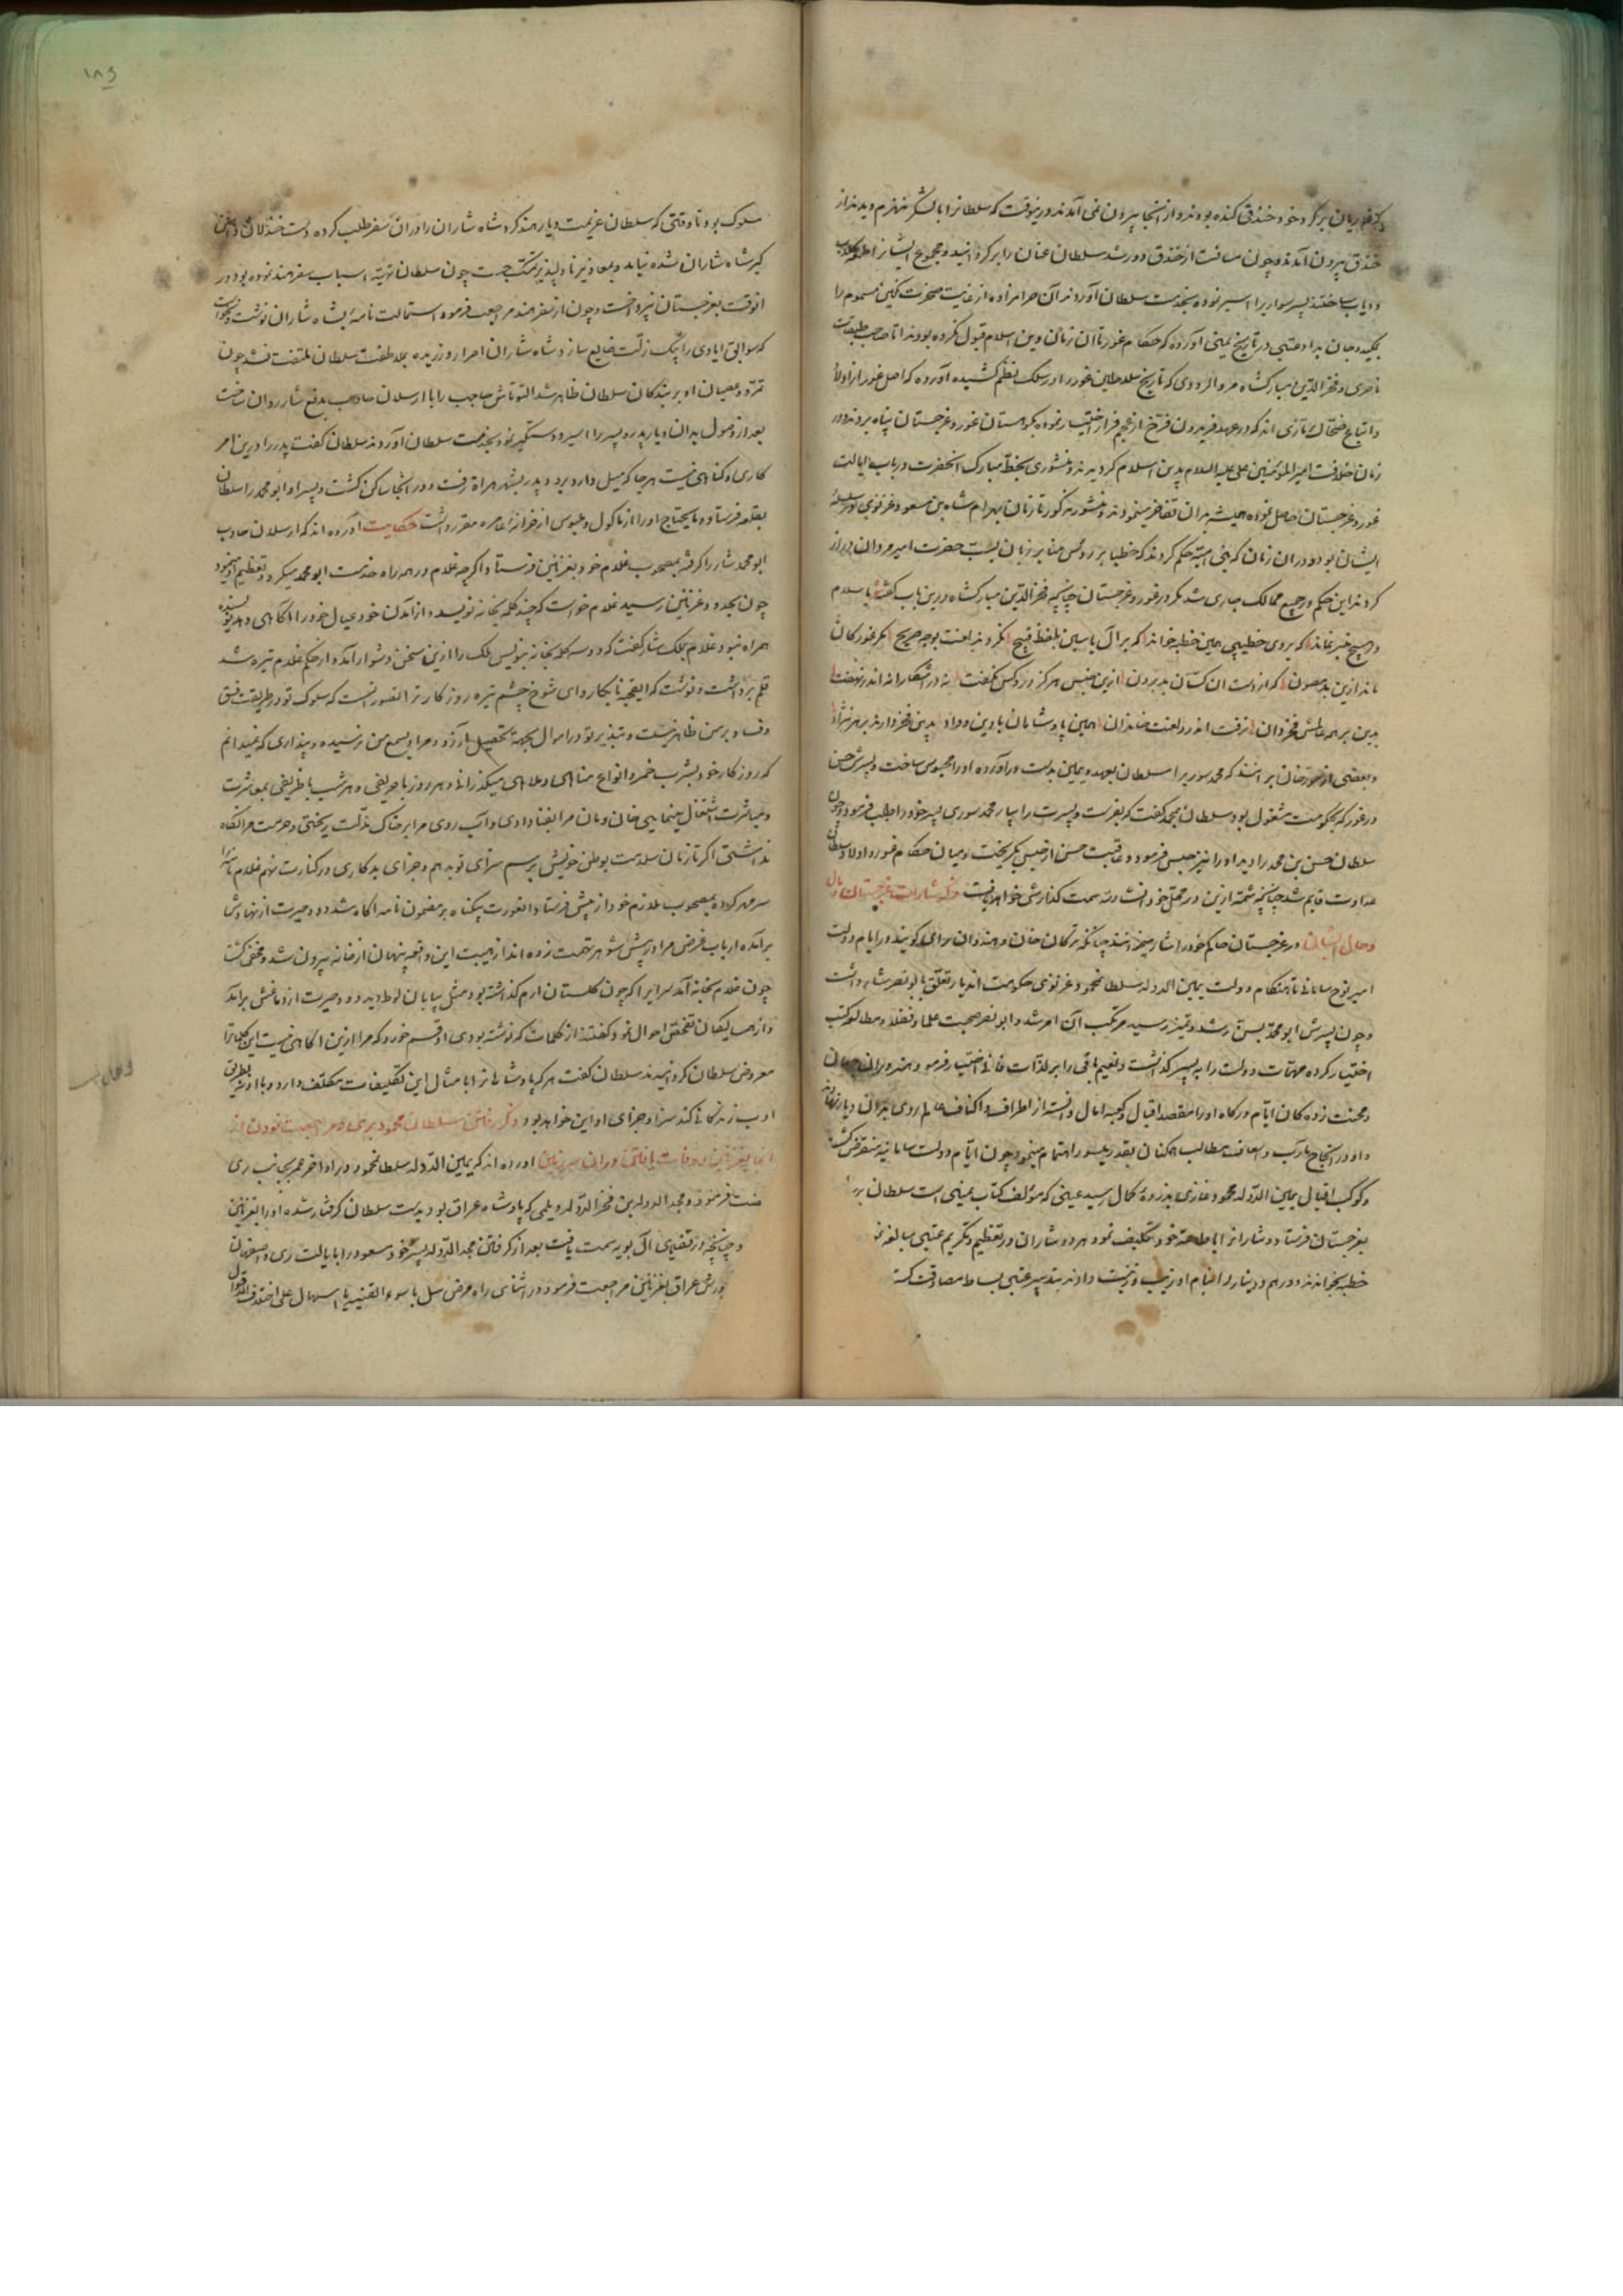 خندق بیرون آمدند و چون مسافت از خندق دور شد سلطان عنان را برگردانیده مجموع ایشانرا طعمه کلاب
و ذیاب ساختند پسر سوری را اسیر نموده بخدمت سلطان آوردند آن حرامزاده از غایت ضجرت نگین مسموم را
بمکید و جان بداد عتبی در تاریخ یمینی آورده که حکام غور تا آن زمان دین اسلام قبول نکرده بودند اما صاحب طبقات
ناصری و فخرالدین مبارکشاه مروالرودی که تاریخ سلاطین غور را در سلک نظم کشیده آورده که اصل غور از اولاد
و اتباع ضحاک تازی اند که در عهد فریدون فرخ از عجم فرار اختیار نموده بکوهستان غور و غرجستان پناه بردند و در
زمان خلافت امیرالمومنین علی علیه السلام بدین اسلام گرویدند و منشوری بخط مبارک آنحضرت در باب ایالت
غور و غرجستان حاصل نموده همیشه بدان تفاخر مینمودند و منشور مذکور تا زمان بهرام شاه بن مسعود غزنوی در سلسله
ایشان بود و در آن زمان که بنی امیه حکم کردند که خطبا بر روس منابر زبان بسب حضرت امیر مردان دراز
کردند این حکم در جمیع ممالک جاری شد مگر در غور و غرجستان چنانچه فخرالدین مبارکشاه درین باب گفته
که بر وی خطیبی همین خطبه خواند که بر آل یاسین بلفظ قبیح نکردند لعنت بوجه صریح
ازین جنس هرگز در و کس نگفت نه در آشکارا نه اندر نهفت
نرفت اندر و لعنت خاندان همین پادشاهان بادین و داد بدین فخر دارند بر هر نژاد
و بعضی از مورخان بر آنند که محمد سوری را سلطان بعهد و یمین بدست درآورده او را محبوس ساخت و پسرش حسن
در غور که بحکومت مشغول بود سلطان بمحمد گفت که بفرست و پسرت را بیار محمد سوری پسر خود را طلب فرمود و چون
سلطان حسن بن محمد را دید او را نیز حبس فرمود و عاقبت حسن از حبس بگریخت و میان حکام غور و اولاد سلطان
عداوت قایم شد چنانچه شمه ازین در محل خود انشاءالله سمت گذارش خواهد یافت ذکر شارات غرجستان و مآل
و حال ایشان در غرجستان حاکم خود را شار میخوانند چنانکه ترکان خان و هندوان رای گویند و در ایام دولت
امیر نوح سامانی تا هنگام دولت یمین الدوله سلطان محمود غزنوی حکومت آندیار تعلق بابونصر شار داشت
و چون پسرش ابومحمد بسن رشد و تمیز رسید مرتکب آن امر شد و ابونصر صحبت علما و فضلا و مطالعه کتب
اختیار کرده مهمات دولت را به پسر گذاشت و نعیم باقی را بر لذات فانی اختیار فرمود و هنروران جهان
و محنت زدگان ایام درگاه او را مقصد اقبال و کعبه آمال دانسته از اطراف و اکناف عالم روی بدان دیار نهادند
و او در انجاح مآرب و اسعاف مطالب همکنان بقدر میسور اهتمام مینمود چون ایام دولت سامانیه منقرض گشت
و کوکب اقبال یمین الدوله محمود غازی بذروه کمال رسید عتبی که مولف کتاب یمینی است سلطان بر
بغرجستان فرستاد و شارانرا باطاعت خود تکلیف نمود هر دو شاران در تعظیم و تکریم عتبی مبالغه
خطبه بخواندند و درهم و دینار را بنام او زیب و زینت دادند
سلوک بود تا وقتی که سلطان عزیمت دیار هند کرد شاه شاران را در آن سفر طلب کرده
گیر شاه شاران شده نیامد و بمعاذیر نادلپذیر تمسک جست چون سلطان تهیه اسباب سفر هند نموده بود در
آنوقت بغرجستان نپرداخت و چون از سفر هند مراجعت فرمود استمالت نامه بشاه شاران نوشت
که سوابق ایادی را بیک زلت ضایع سازد شاه شاران اصرار ورزیده بملاطفت سلطان ملتفت نشد چون
تمرد و عصیان او بر بندگان سلطان ظاهر شد التونتاش حاجب را با ارسلان جاذب بدفع شار روان ساخت
بعد از وصول بدان دیار پدر و پسر را اسیر و دستگیر نموده بخدمت سلطان آوردند سلطان گفت پدر را درین امر
کاری و گناهی نیست هرجا که میل دارد برود پدر بشهر هراة رفت و در آنجا ساکن گشت و پسر او ابومحمد را سلطان
بقلعه فرستاد و مایحتاج او را از ماکول و ملبوس از خزانه عامره مقرر داشت حکایت آورده اند که ارسلان جاذب
ابومحمد شار را گرفته بمصحوب غلام خود بغزنین فرستاد اگرچه غلام در همه راه خدمت ابومحمد میکرد و تعظیم او مینمود
چون بحدود غزنین رسید غلام خواست که چند کلمه بخانه نویسد و از آمدن خود عیال خود را آگاهی دهد
همراه نبود غلام بملک شار گفت که دو سه کلمه بخانه من بنویس ملک را ازین سخن دشوار آمد و از حکم غلام تیره شد
قلم برداشت و نوشت که ای قحبه نابکار و ای شوخ چشم تیره روزگار ترا تصور آنست که سلوک تو در طریقت فسق
و فساد بر من ظاهر نیست و تبذیر تو در اموال بجهة تحصیل آرزو و مراد بسمع من نرسیده و پنداری که نمیدانم
که روزگار خود بشرب خمر و انواع مناهی و ملاهی میگذرانی و هر روز با حریفی و هر شب با ظریفی بمعاشرت
و مباشرت اشتغال مینمایی خان و مان مرا بفنا دادی و آب روی مرا بر خاک مذلت ریختی و حرمت مرا نگاه
نداشتی اگر تا زمان سلامت بوطن خویش برسم سزای تو بدهم و جزای بدکاری در کنارت نهم غلام نامه را
سر مهر کرده بمصحوب ملازم خود از پیش فرستاد آن عورت بیگناه بر مضمون نامه آگاه شد دود حیرت از نهادش
برآمد که ارباب غرض مرا در پیش شوهر تهمت زده اند از هیبت این واقعه پنهان از خانه بیرون شد و مخفی گشت
چون غلام بخانه آمد سرای را که چون گلستان ارم گذاشته بود مثل بیابان لوط دید دود حیرت از دماغش برآمد
و از همسایگان تفحص احوال نمود گفتند از کلمات که نوشته بودی او قسم خورد که مرا ازین آگاهی نیست این حکایت را
معروض سلطان گردانیدند سلطان گفت هر که پادشاهانرا بامثال این تکلیفات مکلف دارد و با او نه بطریق
ادب زندگانی کند سزا و جزای او این خواهد بود ذکر رفتن سلطان محمود بری و مراجعت نمودن از
آنجا بغزنین و وفات یافتن در آن سرزمین آورده اند که یمین الدوله سلطان محمود در اواخر عمر بجانب ری
نهضت فرمود و مجدالدوله بن فخرالدوله دیلمی که پادشاه عراق بود بدست سلطان گرفتار شده او را بغزنین
و چنانچه در قضیه آل بویه سمت یافت بعد از گرفتن مجدالدوله پسر خود مسعود را بایالت ری و اصفهان
عراق بغزنین مراجعت فرمود در اثنای راه مرض سل یا سوء القنیه یا اسهال علی اختلاف اقوال